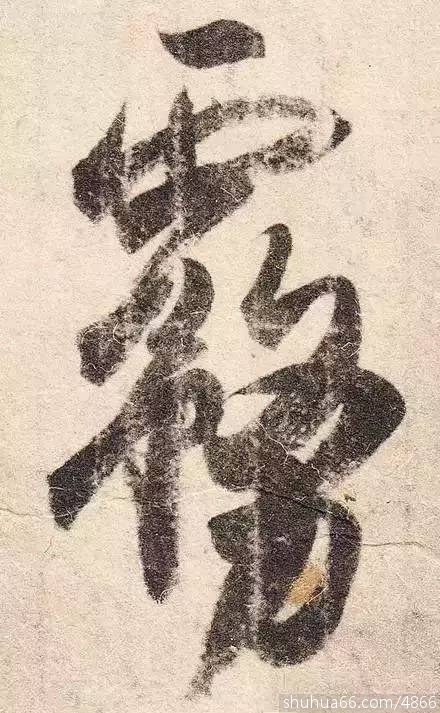 霧
shuhua66.com/4866